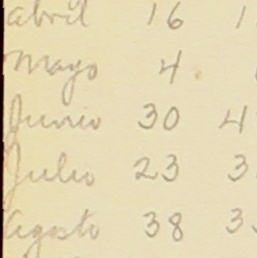 abril 16 1
Mayo 4
Junio 30 4
Julio 23 3
agosto 38 3